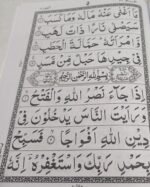 مَآ أَغْنٰى عَنْهُ مَالُهٗ وَمَا كَسَبَ
سَيَصْلٰى نَارًا ذَاتَ لَهَبٍ
وَامْرَاَتُهٗ حَمَّالَةَ الْحَطَبِ
فِيْ جِيْدِهَا حَبْلٌ مِّنْ مَّسَدٍ
بِسْمِ اللهِ الرَّحْمٰنِ الرَّحِيْمِ
اِذَا جَآءَ نَصْرُ اللهِ وَالْفَتْحُ
وَرَاَيْتَ النَّاسَ يَدْخُلُوْنَ فِيْ
دِيْنِ اللهِ اَفْوَاجًا فَسَبِّحْ
بِحَمْدِ رَبِّكَ وَاسْتَغْفِرْهُ اِنَّهٗ